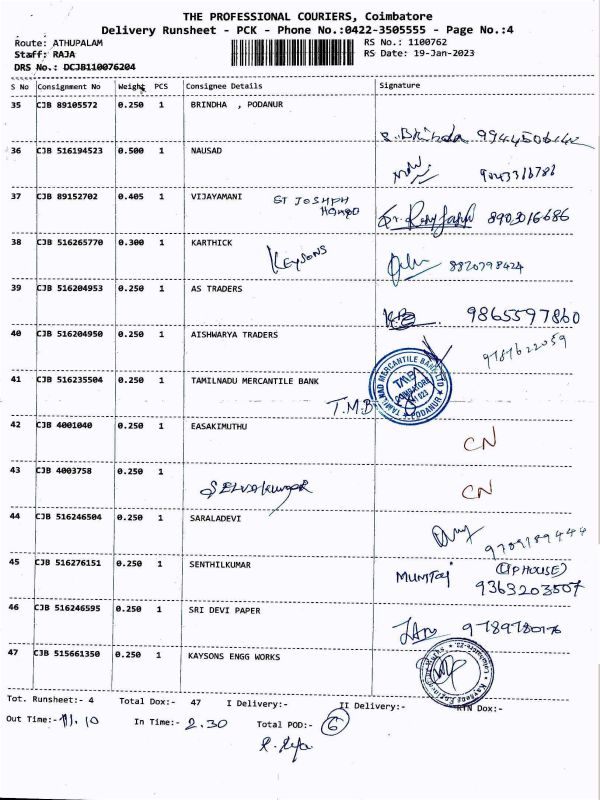 THE PROFESSIONAL COURIERS, Coimbatore
Delivery Runsheet - PCK - Phone No.:0422-3505555 - Page No.:4
Route: ATHUPALAM RS No.: 1100762
Staff: RAJA RS Date: 19-Jan-2023
DRS No.: DCJB110076204
S No Consignment No Weight PCS Consignee Details Signature
35 CJB 89105572 0.250 1 BRINDHA , PODANUR
Brinda
36 CJB 516194523 0.500 1 NAUSAD
9043316786
37 CJB 89152702 0.405 1 VIJAYAMANI ST JOSHPH
8903016686
38 CJB 516265770 0.300 1 KARTHICK Keysons
8820798424
39 CJB 516204953 0.250 1 AS TRADERS
9865597860
40 CJB 516204950 0.250 1 AISHWARYA TRADERS
9787622059
41 CJB 516235504 0.250 1 TAMILNADU MERCANTILE BANK
T.M.B
TAMILNAD MERCANTILE BANK LTD
TMB
COIMBATORE
PODANUR
42 CJB 4001040 0.250 1 EASAKIMUTHU CN
43 CJB 4003758 0.250 1 Selvakumar CN
44 CJB 516246504 0.250 1 SARALADEVI
9709189444
45 CJB 516276151 0.250 1 SENTHILKUMAR Mumtaj
9363203507
46 CJB 516246595 0.250 1 SRI DEVI PAPER
9789780176
47 CJB 515661350 0.250 1 KAYSONS ENGG WORKS
Tot. Runsheet:- 4 Total Dox:- 47 I Delivery:- II Delivery:- RTN Dox:-
Out Time:- 11.10 In Time:- 2.30 Total POD:- 6